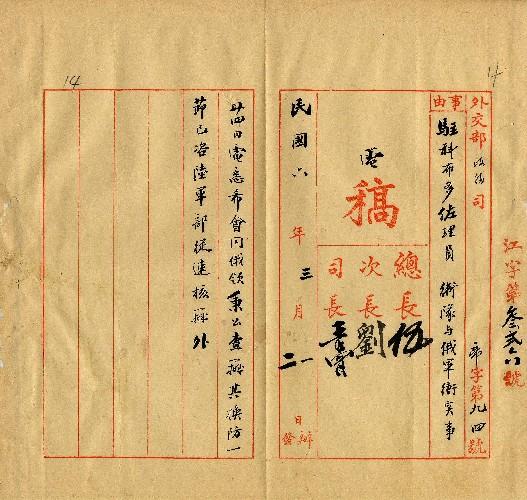 14
江字第叁弍六號
外交部政務司 字第九四號
事由
駐科布多佐理員 衛隊與俄軍衝突事
電
稿
總長 伍
次長 劉
司長
民國六年三月二 日辦發
14
廿四日電悉希會同俄領秉公查辦其換防一
節已咨陸軍部從速核辦外